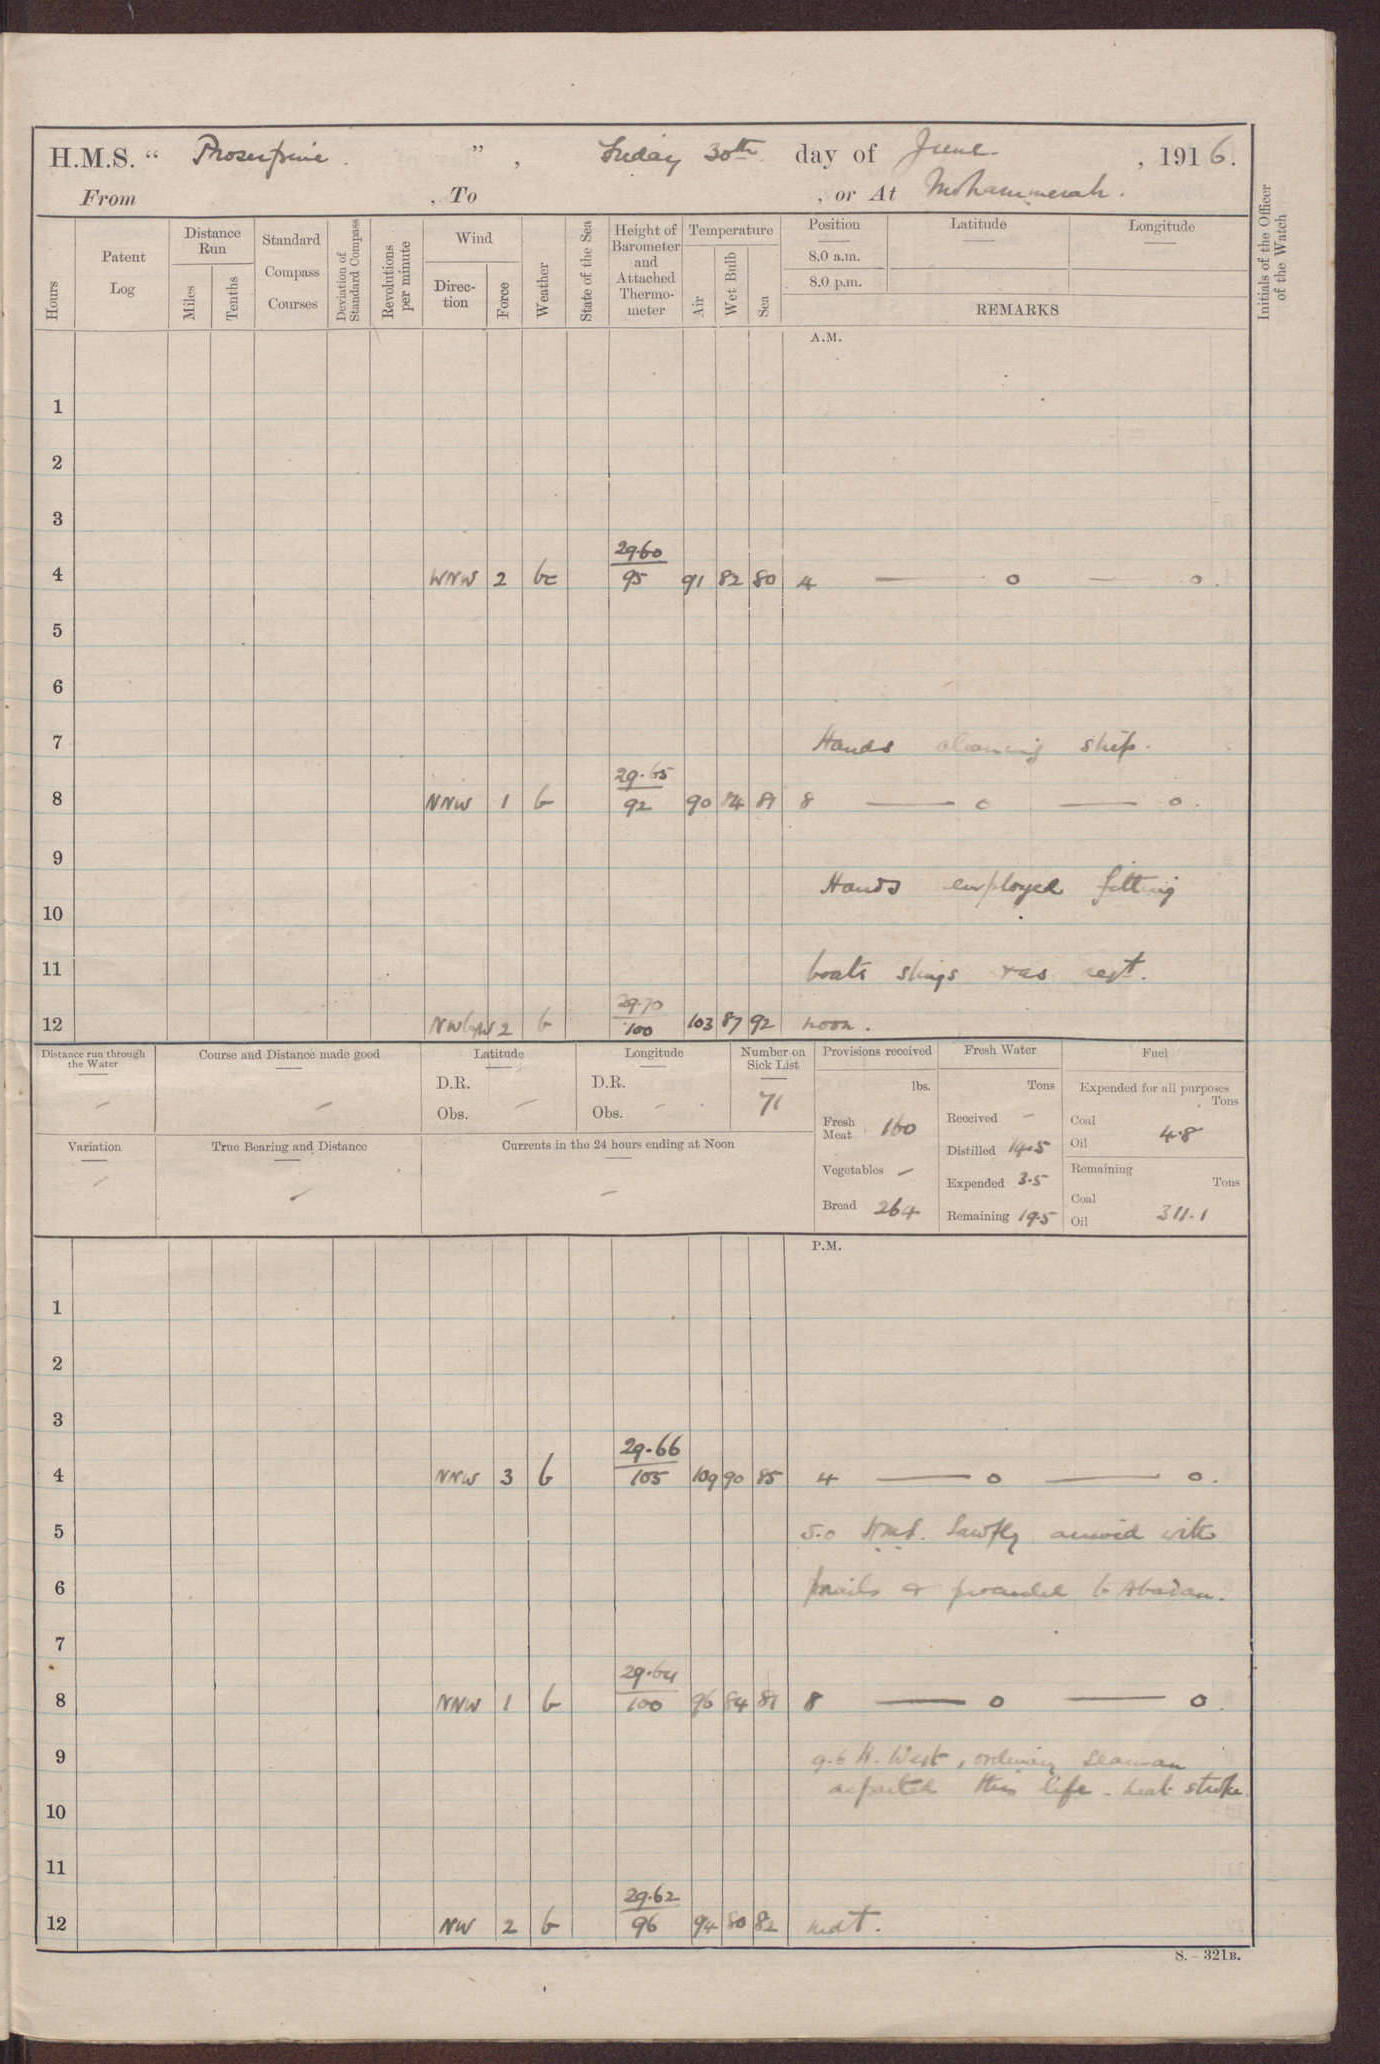 H.M.S. " Proserpine. ", Friday 30th day of June, 1916.
From , To , or At Mohammerah.
Hours
Patent Log
Distance Run
Miles
Tenths
Standard Compass Courses
Deviation of Standard Compass
Revolutions per minute
Wind
Direction
Force
Weather
State of the Sea
Height of Barometer and Attached Thermometer
Temperature
Air
Wet Bulb
Sea
Position
8.0 a.m.
8.0 p.m.
Latitude
Longitude
REMARKS
Initials of the Officer of the Watch
A.M.
1
2
3
29.60
4 WNW 2 bc 95 91 82 80 4 — o — o.
5
6
7 Hands cleaning ship.
29.65
8 NNW 1 b 92 90 84 81 8 — o — o.
9
Hands employed fitting
10
11 boats slings &as reqt.
29.70
12 NWbyW 2 b 100 103 87 92 noon.
Distance run through the Water –
Course and Distance made good –
Latitude
D.R.
Obs. –
Longitude
D.R.
Obs. –
Number on Sick List
71
Provisions received
lbs.
Fresh Meat 160
Vegetables –
Bread 264
Fresh Water
Tons
Received –
Distilled 14.5
Expended 3.5
Remaining 19.5
Fuel
Expended for all purposes
Tons
Coal
Oil 4.8
Remaining
Tons
Coal
Oil 311.1
Variation –
True Bearing and Distance –
Currents in the 24 hours ending at Noon –
P.M.
1
2
3
29.66
4 NNW 3 b 105 109 90 85 4 — o — o.
5 5.0 H.M.S. Sawfly arrived with
6 mails & proceeded to Abadan.
7
29.64
8 NNW 1 b 100 96 84 81 8 — o — o.
9 9.6 H. West, ordinary seaman
departed this life - heat stroke.
10
11
29.62
12 NW 2 b 96 94 80 82 mdt.
S. – 321B.